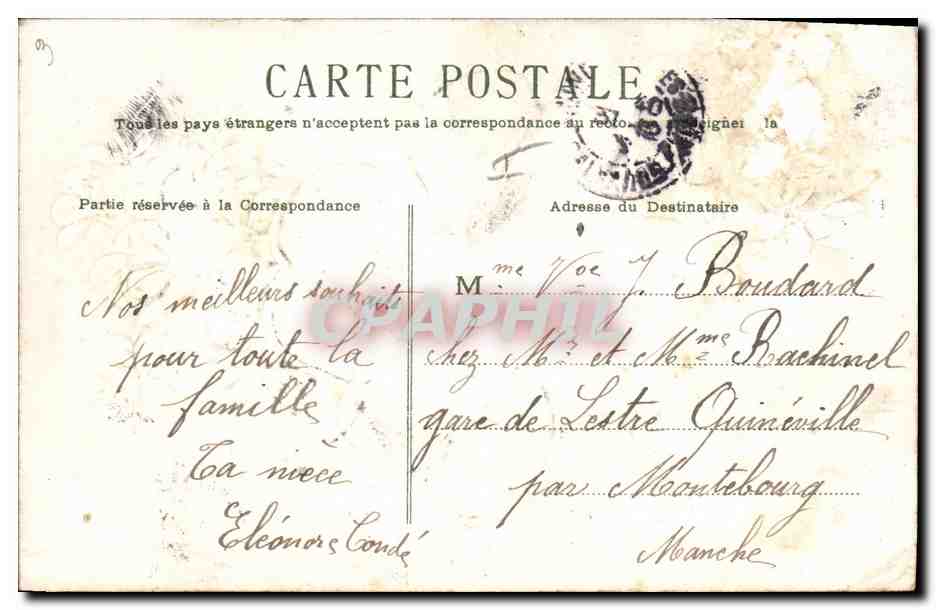 CARTE POSTALE
Tous les pays étrangers n'acceptent pas la correspondance au recto la
Partie réservée à la Correspondance
Adresse du Destinataire
Nos meilleurs souhaits
pour toute la
famille
Ta nièce
Eléonore Condé
Mme Vve J. Boudard
chez Mr et Mme Rachinel
gare de Lestre Quinéville
par Montebourg
Manche
CPAPHIL